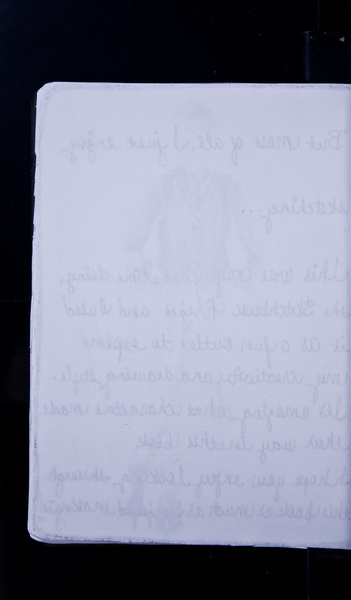 But most of all, I just enjoy
sketching...
This was my first time doing
the Sketchbook Project and I used
it as a fun outlet to explore
my creativity and drawing style.
It's amazing what characters made
their way in this book
I hope you enjoy looking through
this book as much as I enjoyed making it